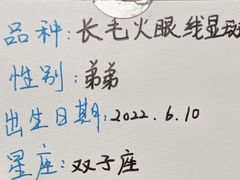 品种:长毛火眼线显斑
性别:弟弟
出生日期:2022.6.10
星座:双子座